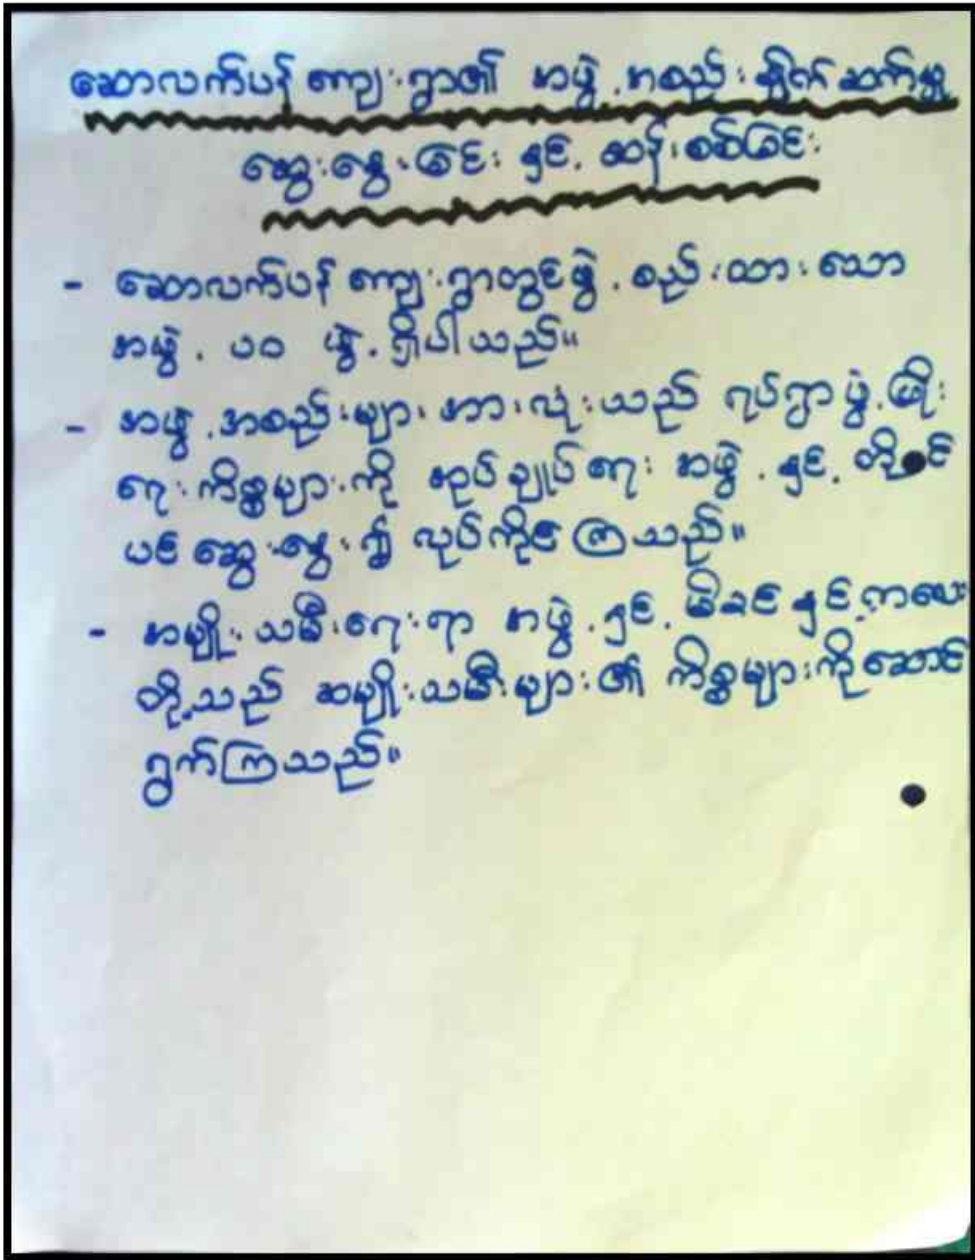 ဆောလက်ပန် ကျေးရွာ၏ အဖွဲ့အစည်း ချိတ်ဆက်မှု
ဆွေးနွေးခြင်း နှင့် ဆန်းစစ်ခြင်း
- ဆောလက်ပန် ကျေးရွာတွင် ဖွဲ့စည်းထားသော
အဖွဲ့ ၁၀ ဖွဲ့ ရှိပါသည်။
- အဖွဲ့အစည်းများအားလုံးသည် ရပ်ရွာဖွံ့ဖြိုး
ရေးကိစ္စများကို အုပ်ချုပ်ရေး အဖွဲ့နှင့် တိုင်
ပင်ဆွေးနွေး၍ လုပ်ကိုင်ကြသည်။
- အမျိုးသမီးရေးရာ အဖွဲ့နှင့် မိခင်နှင့်ကလေး
တို့သည် အမျိုးသမီးများ၏ ကိစ္စများကိုဆောင်
ရွက်ကြသည်။